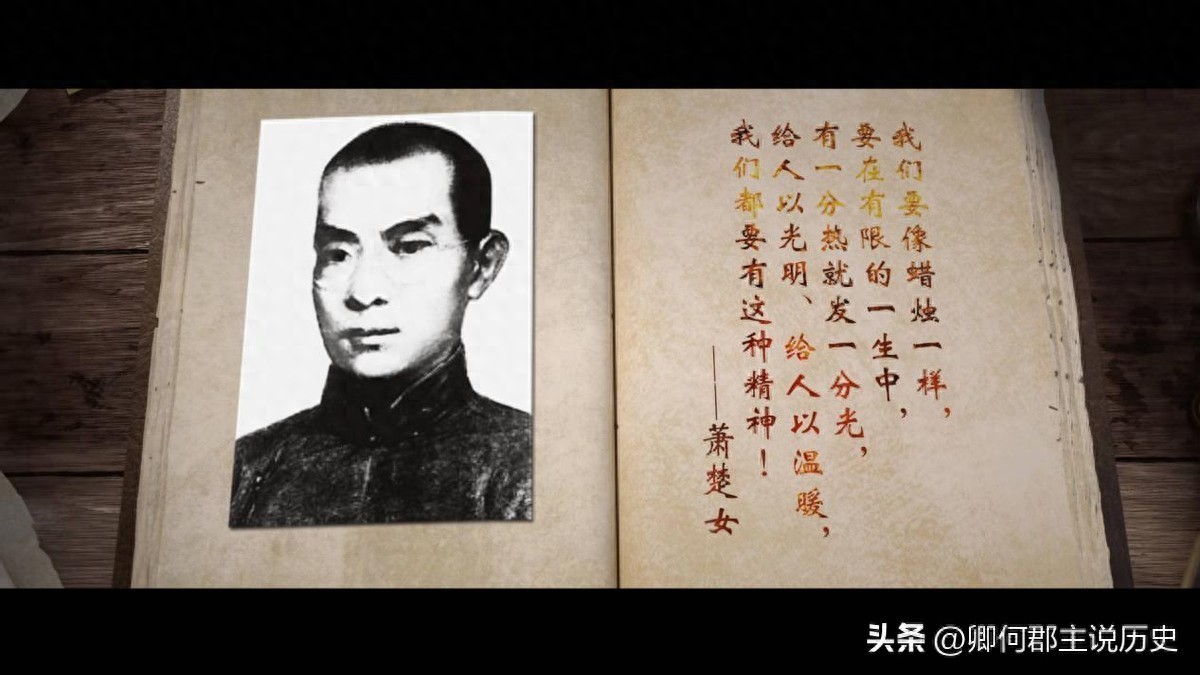 我们要像蜡烛一样，
要在有限的一生中，
有一分热就发一分光，
给人以光明、给人以温暖，
我们都要有这种精神！
——萧楚女
头条 @卿何郡主说历史